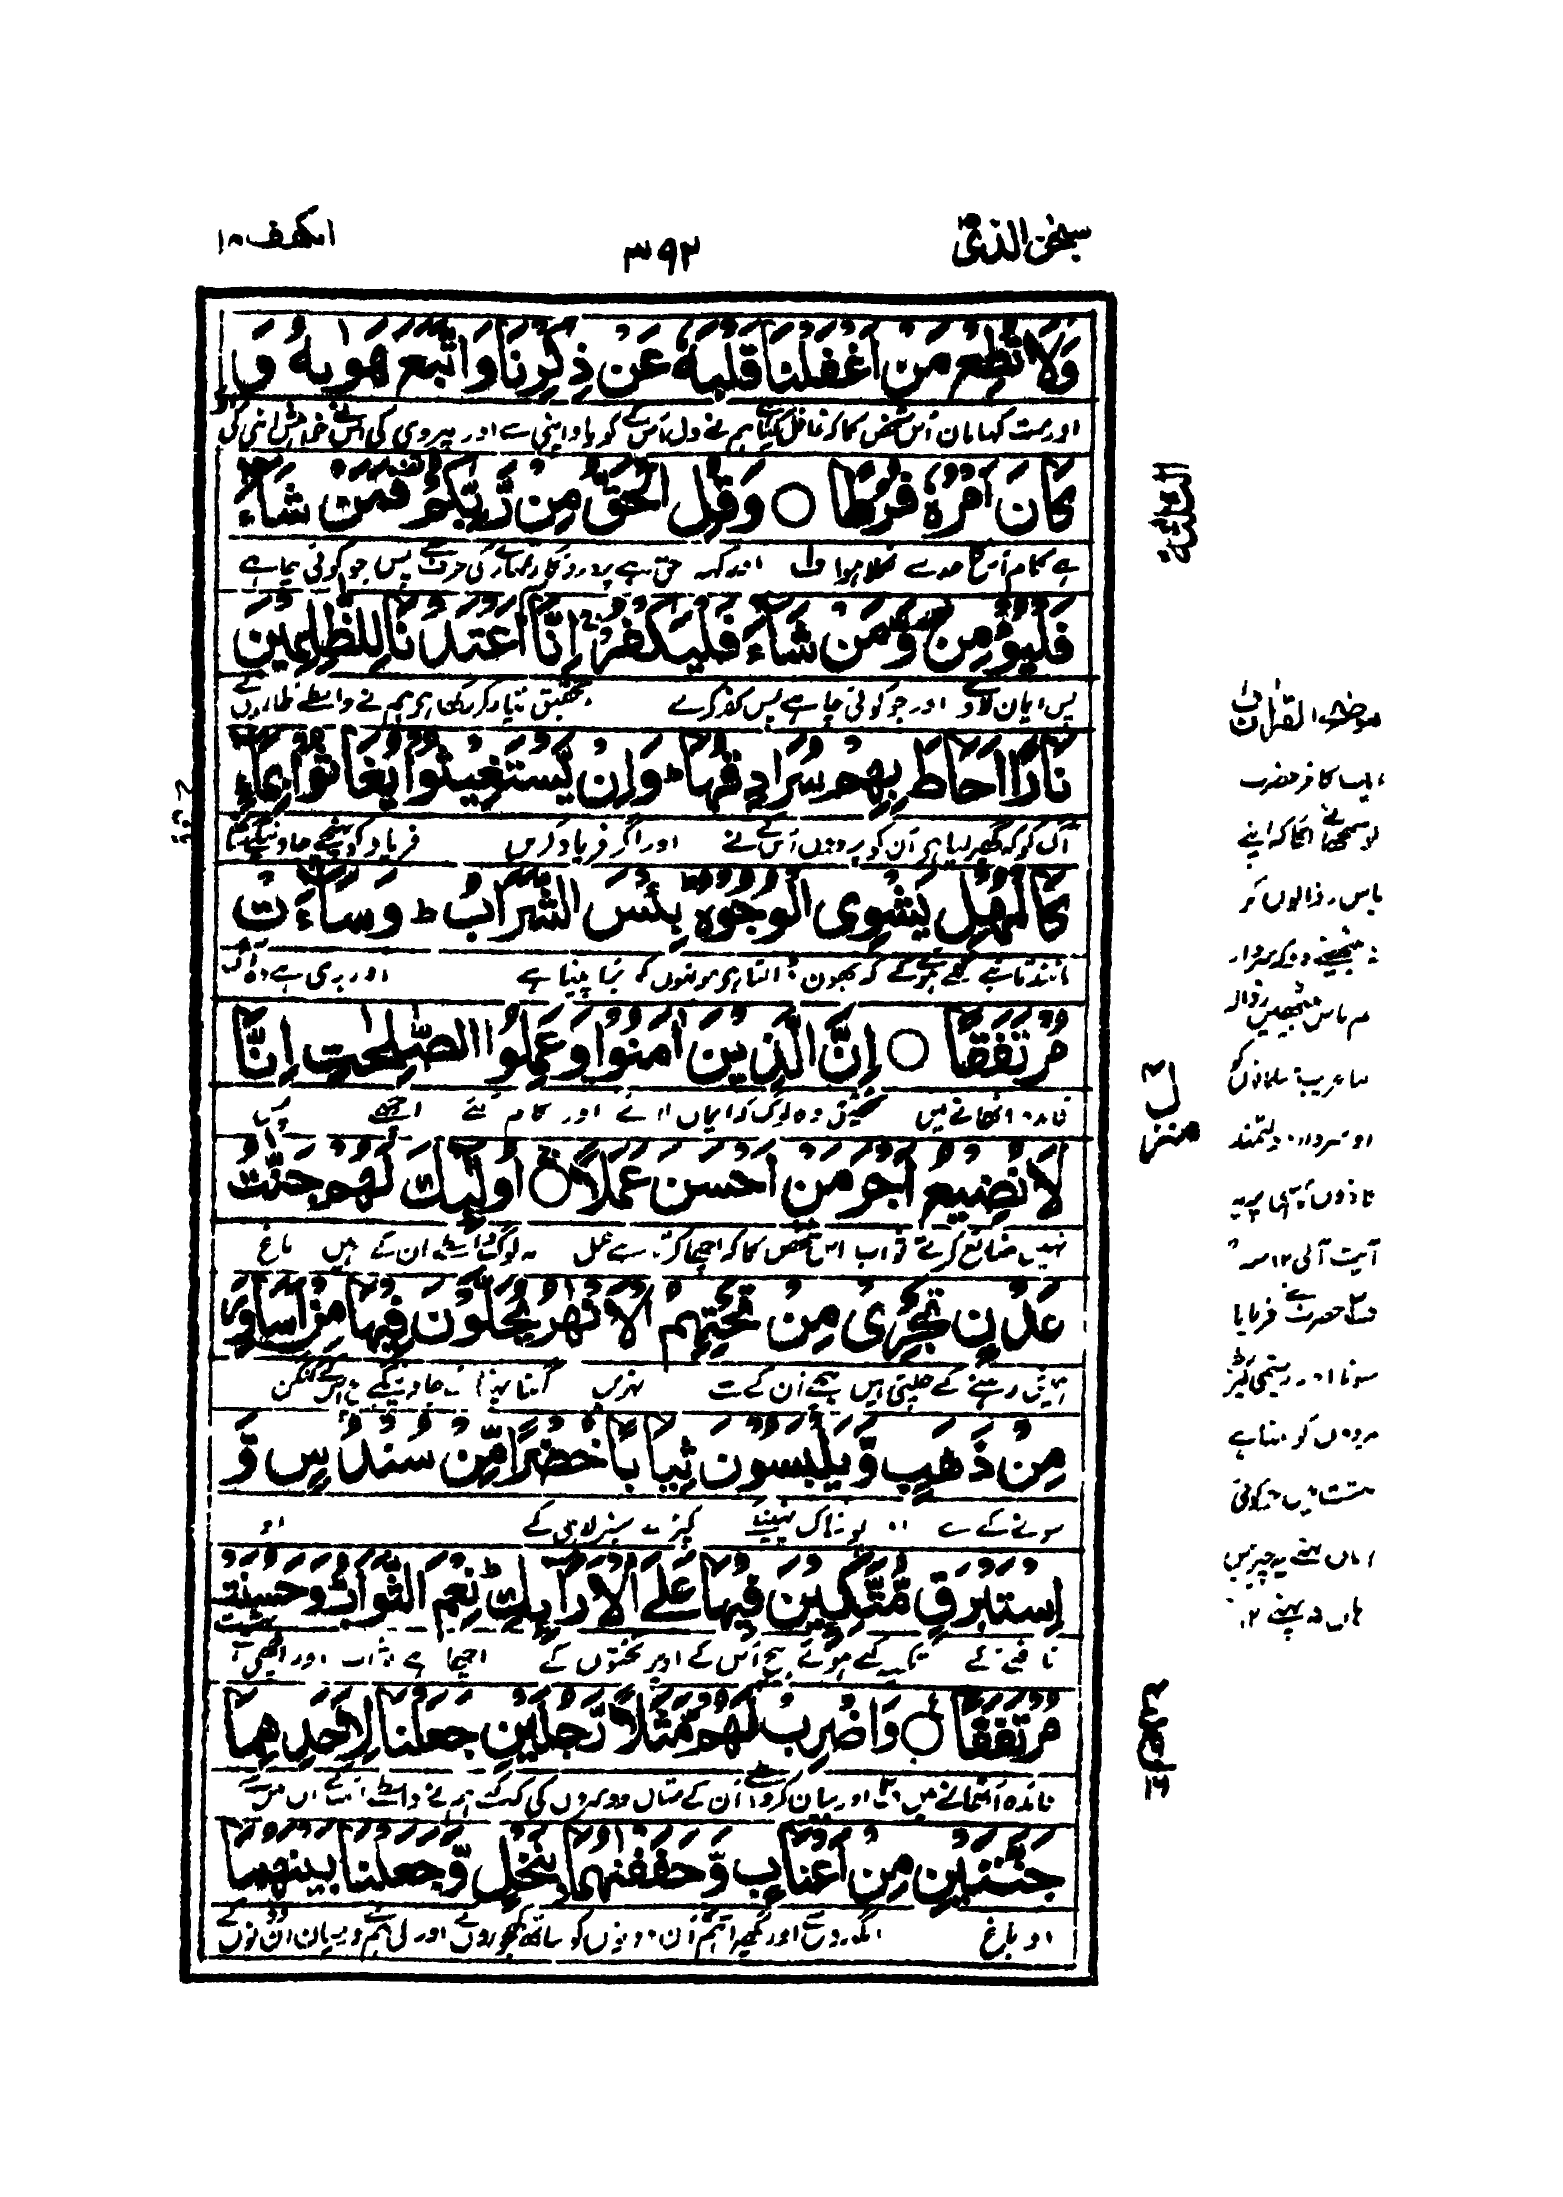 سبحن الذی ۱۵
۳۹۲
الکهف ۱۸
وَلَا تُطِعْ مَنْ اَغْفَلْنَا قَلْبَهٗ عَنْ ذِكْرِنَا وَاتَّبَعَ هَوٰىهُ وَ
اور مت کہا مان اُس شخص کا کہ غافل کیا ہے ہم نے دل اُس کے کو یاد اپنی سے اور پیروی کی اُس نے خواہش اپنی کی
كَانَ اَمْرُهٗ فُرُطًا ○ وَقُلِ الْحَقُّ مِنْ رَّبِّكُمْ فَمَنْ شَآءَ
ہے کام اُس کا حد سے نکلا ہوا ف اور کہہ حق ہے پروردگار تمہارے کی طرف سے پس جو کوئی چاہے
فَلْيُؤْمِنْ وَّمَنْ شَآءَ فَلْيَكْفُرْ اِنَّآ اَعْتَدْنَا لِلظّٰلِمِيْنَ
پس ایمان لاوے اور جو کوئی چاہے پس کفر کرے تحقیق تیار کر رکھا ہے ہم نے واسطے ظالموں کے
نَارًا اَحَاطَ بِهِمْ سُرَادِقُهَا ؕ وَاِنْ يَّسْتَغِيْثُوْا يُغَاثُوْا بِمَآءٍ
آگ کو کہ گھیر لیا ہے اُن کو پردوں اُس کے نے اور اگر فریاد کریں فریاد کو پہنچے جاوینگے
كَالْمُهْلِ يَشْوِى الْوُجُوْهَ بِئْسَ الشَّرَابُ ؕ وَسَآءَتْ
مانند تانبے گلے ہوئے کے کہ بھون ڈالتا ہے مونہوں کو برا پینا ہے اور بری ہے وہ آگ
مُرْتَفَقًا ○ اِنَّ الَّذِيْنَ اٰمَنُوْا وَعَمِلُوا الصّٰلِحٰتِ اِنَّا
فائدہ اٹھانے میں تحقیق وہ لوگ کہ ایمان لائے اور کام کئے اچھے
لَا نُضِيْعُ اَجْرَ مَنْ اَحْسَنَ عَمَلًا ○ اُولٰٓئِكَ لَهُمْ جَنّٰتُ
نہیں ضائع کرتے ثواب اس شخص کا کہ اچھا کرتا ہے عمل یہ لوگ واسطے ان کے ہیں باغ
عَدْنٍ تَجْرِىْ مِنْ تَحْتِهِمُ الْاَنْهٰرُ يُحَلَّوْنَ فِيْهَا مِنْ اَسَاوِرَ
ہمیشہ رہنے کے چلتی ہیں نیچے اُن کے سے نہریں گہنا پہنائے جاوینگے بیچ اُس کے کنگن
مِنْ ذَهَبٍ وَّيَلْبَسُوْنَ ثِيَابًا خُضْرًا مِّنْ سُنْدُسٍ وَّ
سونے کے سے اور پوشاک پہنینگے کپڑے سبز لاہی کے اور
اِسْتَبْرَقٍ مُّتَّكِـِٕيْنَ فِيْهَا عَلَى الْاَرَآئِكِ ؕ نِعْمَ الثَّوَابُ ؕ وَحَسُنَتْ
تافتے کے تکیہ کئے ہوئے بیچ اُس کے اوپر تختوں کے اچھا ہے ثواب اور اچھی ہے بہشت
مُرْتَفَقًا ○ وَاضْرِبْ لَهُمْ مَّثَلًا رَّجُلَيْنِ جَعَلْنَا لِاَحَدِهِمَا
فائدہ اُٹھانے میں ف۲ اور بیان کر واسطے اُن کے مثال دو مردوں کی کہ کئے ہم نے واسطے ایک کے ان میں سے
جَنَّتَيْنِ مِنْ اَعْنَابٍ وَّحَفَفْنٰهُمَا بِنَخْلٍ وَّجَعَلْنَا بَيْنَهُمَا
دو باغ انگوروں سے اور گھیرا ہم نے اُن دونوں کو ساتھ کھجوروں کے اور کی ہم نے درمیان ان دونوں کے
موضح القرآن ف
ایک کافر حضرت
کو سمجھانے لگا کہ اپنے
پاس رذالوں کو
نہ بیٹھنے دو کہ سردار
تم پاس بیٹھیں رذالہ
کہا غریب مسلمانوں کو
اور سردار دولتمند
کافروں کو اسی پر یہ
آیت آئی ۱۲ منہ
ف۲ حضرت نے فرمایا
سونا اور ریشمی کپڑا
مردوں کو ملنا ہے
بہشت میں جو کوئی
یہاں پہنے یہ چیزیں
وہاں نہ پہنے ۱۲
الثلثة
منزل